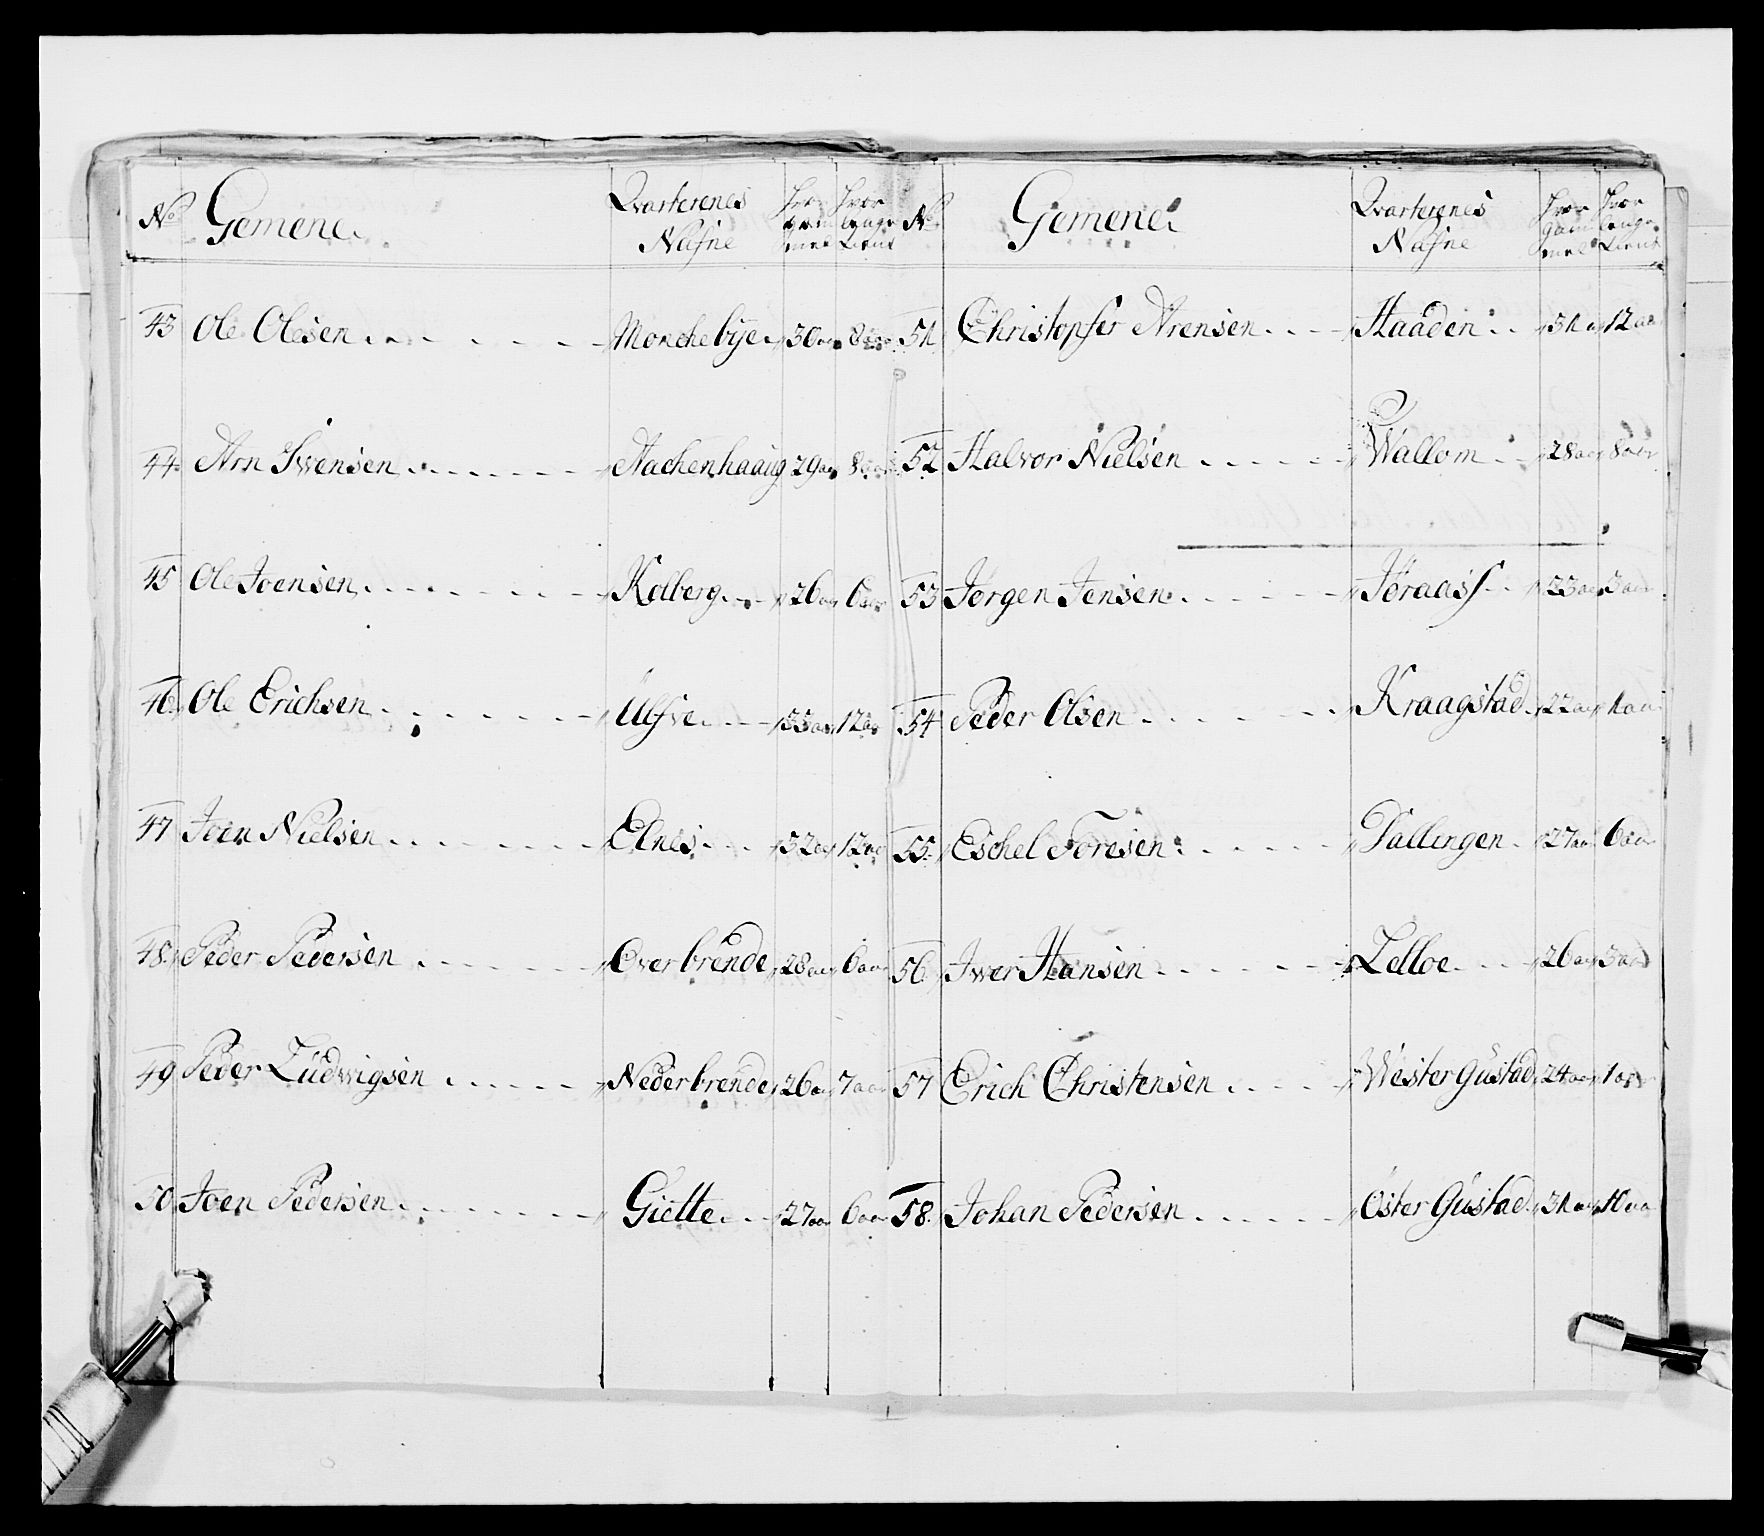 No Gemene. Qvarterenes Nafne Hvor gammel Hvor længe tient
43 Ole Olesen Monchebÿe 30 aar 8 aar
44 Arn Swensen Aachenhaaug 29 aar 8 aar
45 Ole Joensen Kolberg 26 aar 6 aar
46 Ole Erichsen Ulfsve 33 aar 12 aar
47 Joen Nielsen Elnes 32 aar 12 aar
48 Peder Pedersen Overbrende 28 aar 6 aar
49 Peder Ludvigsen Nederbrende 26 aar 7 aar
50 Joen Pedersen Giette 27 aar 6 aar
No Gemene. Qvarterenes Nafne Hvor gammel Hvor længe tient
51 Christopfer Arensen Haaden 31 a 12 aar
52 Halvor Nielsen Wallom 28 aar 8 aar
53 Jørgen Jensen Jøraass 23 aar 3 aar
54 Peder Olsen Kraagstad 22 aar 1 aar
55 Eschel Toresen Dallingen 27 aar 6 aar
56 Iwer Hansen Lelloe 26 aar 3 aar
57 Erich Christensen Wester Gustad 24 aar 1 aar
58 Johan Pedersen Øster Gustad 31 aar 10 aar